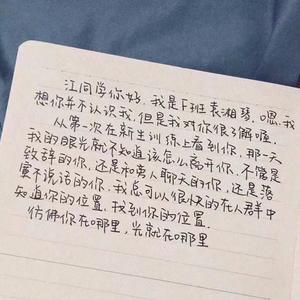 江同学你好,我是F班袁湘琴,嗯,我
想你并不认识我,但是我对你很了解喔,
从第一次在新生训练上看到你,那一天
我的眼光就不知道该怎么离开你,不管是
致辞的你,还是和旁人聊天的你,还是落
寞不说话的你,我总可以很快的在人群中
知道你的位置,找到你的位置.
仿佛你在哪里,光就在哪里